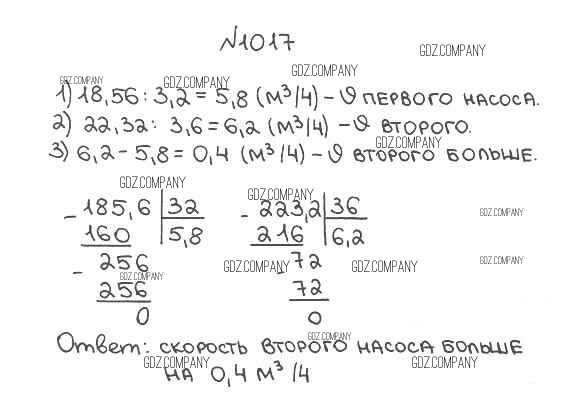 N1017
GDZ.COMPANY
GDZ.COMPANY
GDZ.COMPANY GDZ.COMPANY
1) 18,56 : 3,2 = 5,8 (м³/ч) – υ ПЕРВОГО НАСОСА.
2) 22,32 : 3,6 = 6,2 (м³/ч) – υ ВТОРОГО.
GDZ.COMPANY
3) 6,2 – 5,8 = 0,4 (м³/ч) – υ ВТОРОГО БОЛЬШЕ.
GDZ.COMPANY GDZ.COMPANY
– 185,6 | 32 – 223,2 | 36 GDZ.COMPANY
160 5,8 216 6,2
– 256 GDZ.COMPANY – 72 GDZ.COMPANY GDZ.COMPANY
GDZ.COMPANY
256 72
0 0
GDZ.COMPANY
Ответ: СКОРОСТЬ ВТОРОГО НАСОСА БОЛЬШЕ
GDZ.COMPANY GDZ.COMPANY
НА 0,4 м³/ч